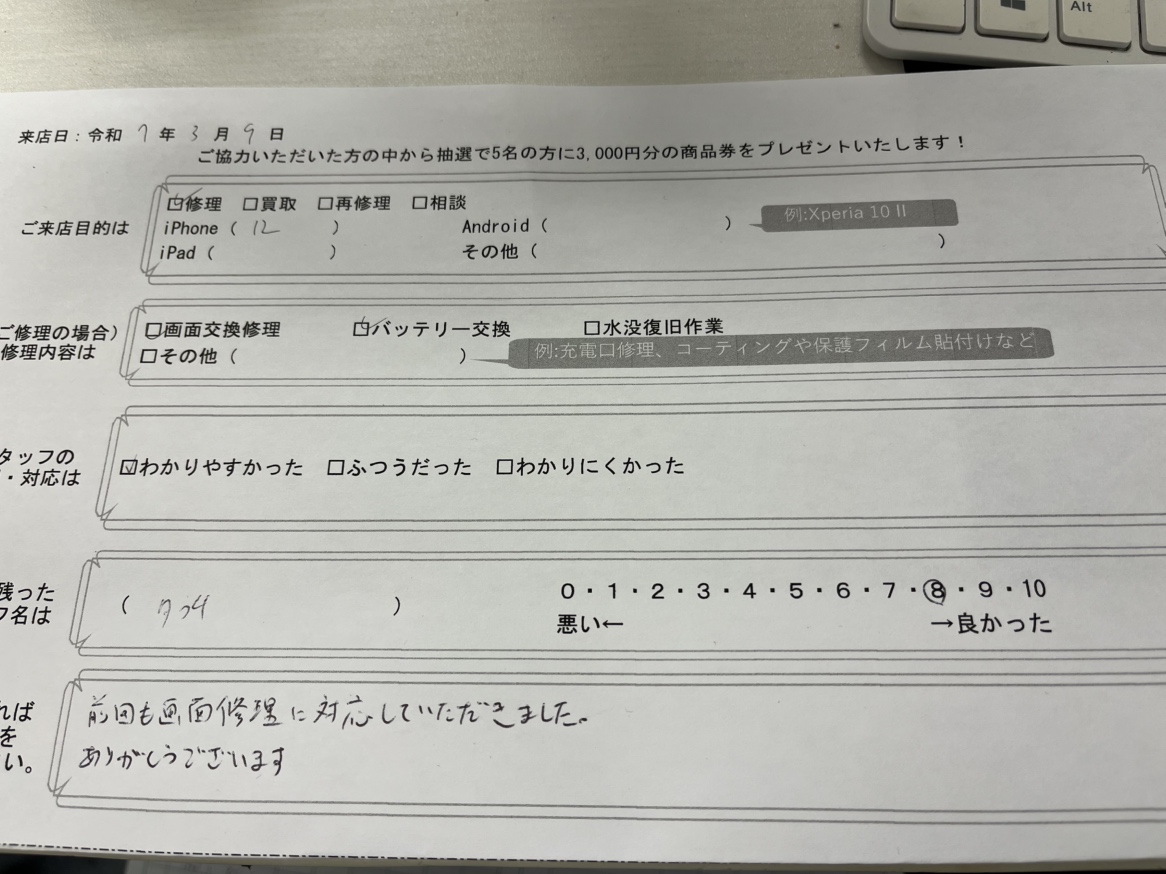 Alt
来店日：令和 7 年 3 月 9 日
ご協力いただいた方の中から抽選で5名の方に3,000円分の商品券をプレゼントいたします！
ご来店目的は
☑修理 □買取 □再修理 □相談
iPhone（ 12 ） Android（ ） 例:Xperia 10 II
iPad（ ） その他（ ）
ご修理の場合）
修理内容は
□画面交換修理 ☑バッテリー交換 □水没復旧作業
□その他（ ） 例:充電口修理、コーティングや保護フィルム貼付けなど
タッフの
・対応は
☑わかりやすかった □ふつうだった □わかりにくかった
残った
フ名は
（ ）
0・1・2・3・4・5・6・7・8・9・10
悪い← →良かった
れば
を
い。
前回も画面修理に対応していただきました。
ありがとうございます